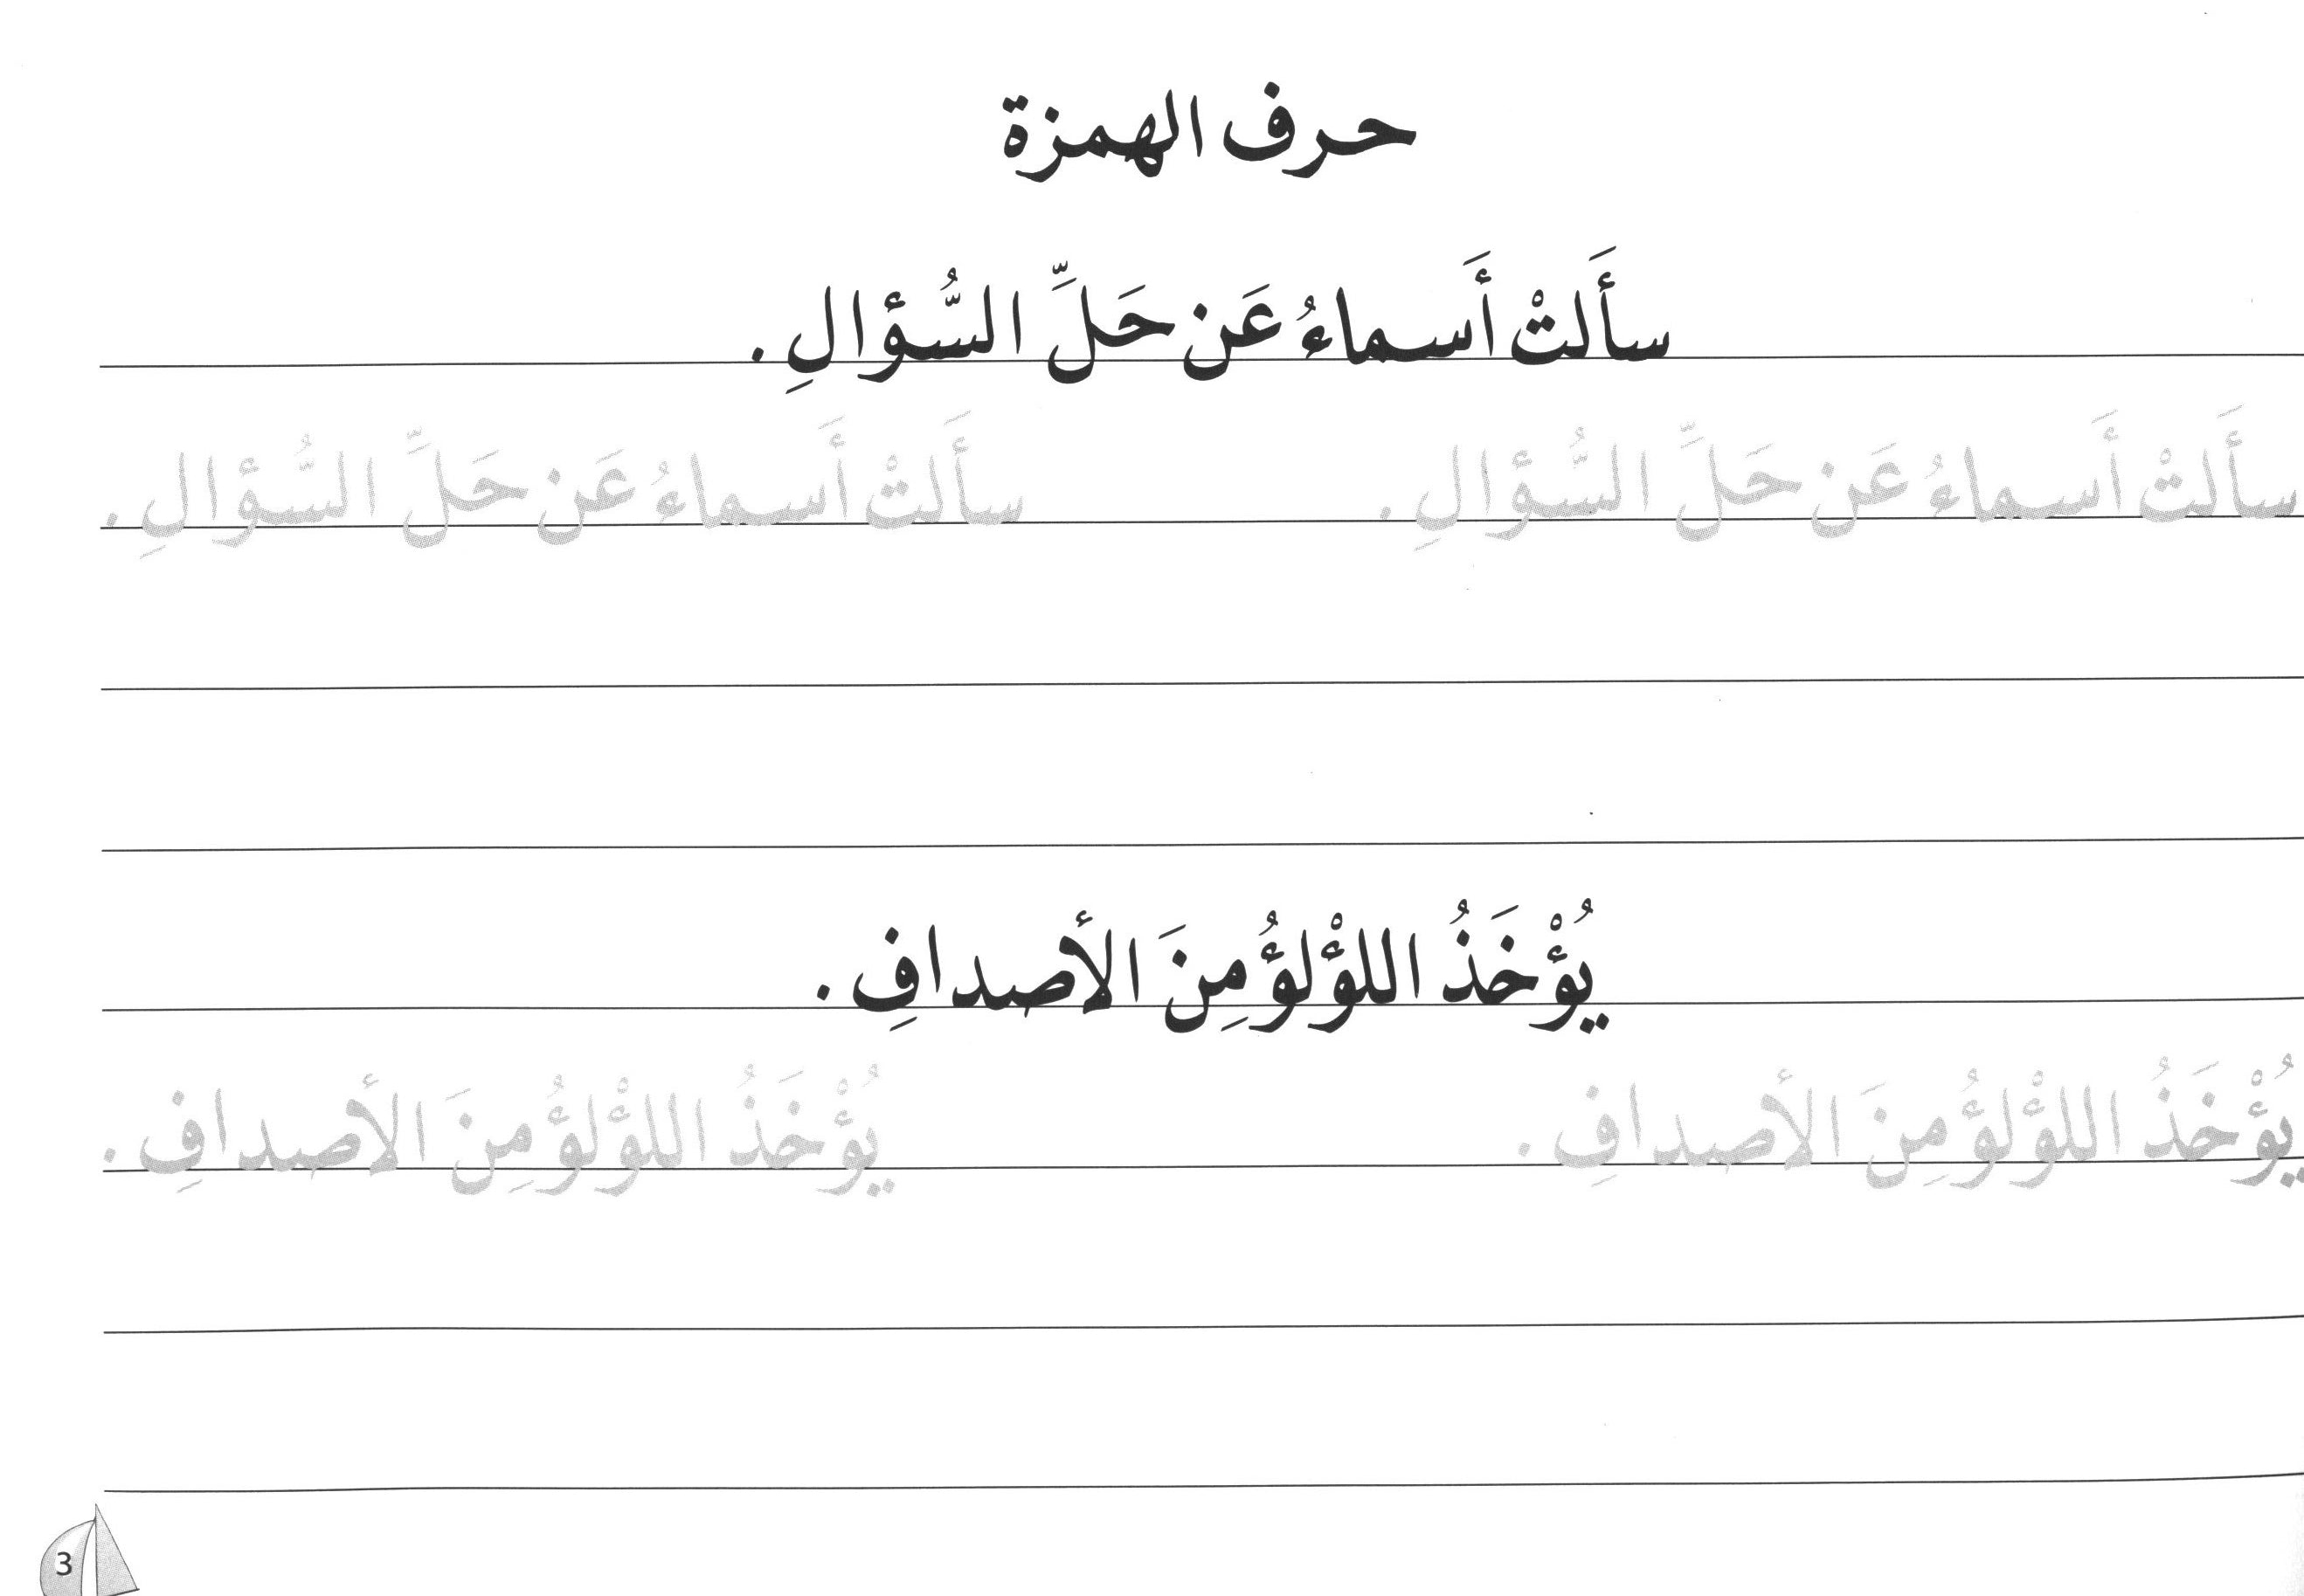 حرف الهمزة
سأَلتْ أَسماءُ عَن حَلِّ السُّؤالِ .
سأَلتْ أَسماءُ عَن حَلِّ السُّؤالِ . سأَلتْ أَسماءُ عَن حَلِّ السُّؤالِ .
يُؤْخَذُ اللؤْلؤُ مِنَ الأصدافِ .
يُؤْخَذُ اللؤْلؤُ مِنَ الأصدافِ . يُؤْخَذُ اللؤْلؤُ مِنَ الأصدافِ .
3